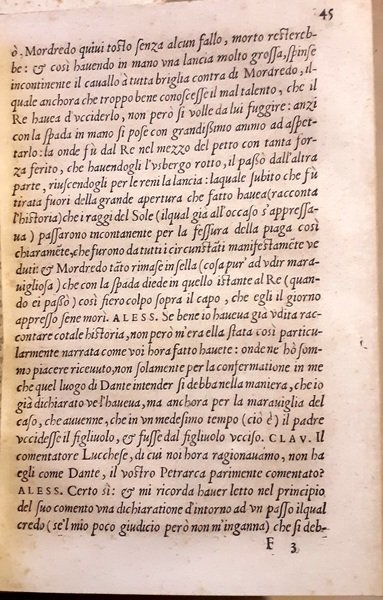 45
ò. Mordredo quiui tosto senza alcun fallo, morto resterebbe:
& così hauendo in mano vna lancia molto grossa, spinse
incontinente il cauallo à tutta briglia contra di Mordredo, il-
quale anchora che troppo bene conoscesse il mal talento, che il
Re hauea d'vcciderlo, non però si volle da lui fuggire: anzi
con la spada in mano si pose con grandissimo animo ad aspet-
tarlo: la onde fù dal Re nel mezzo del petto con tanta for-
za ferito, che hauendogli l'vsbergo rotto, il passò dall'altra
parte, riuscendogli per le reni la lancia: laquale subito che fù
tirata fuori della grande apertura che fatto hauea (racconta
l'historia) che i raggi del Sole (ilqual già all'occaso s'appressa-
ua) passarono incontanente per la fessura della piaga così
chiaramēte, che furono da tutti i circunstāti manifestamēte ve
duti: & Mordredo tāto rimase in sella (cosa pur' ad vdir mara-
uigliosa) che con la spada diede in quello istante al Re (quan-
do ei passò) così fiero colpo sopra il capo, che egli il giorno
appresso sene morì. ALESS. Se bene io hauea già vdita raccon-
tare cotale historia, non però m'era ella stata così particu-
larmente narrata come voi hora fatto hauete: onde ne hò som-
mo piacere riceuuto, non solamente per la confermatione in me
che quel luogo di Dante intender si debba nella maniera, che io
già dichiarato ve l'haueua, ma anchora per la marauiglia del
caso, che auuenne, che in vn medesimo tempo (ciò è) il padre
vccidesse il figliuolo, & fusse dal figliuolo vcciso. CLAV. Il
comentatore Lucchese, di cui noi hora ragionauamo, non ha
egli come Dante, il vostro Petrarca parimente comentato?
ALESS. Certo sì: & mi ricorda hauer letto nel principio
del suo comento vna dichiaratione d'intorno ad vn passo ilqual
credo (se'l mio poco giudicio però non m'inganna) che si deb-
F 3